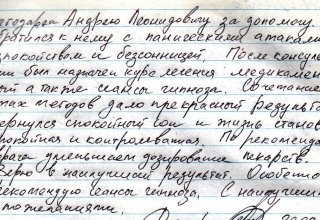 агодарен Андрею Леонидовичу за допомогу.
братился к нему с паническими атаками
спокойством и бессонницей. После консуль
ии был назначен курс лечения медикамен
ый а также сеансы гипноза. Сочетание
тих методов дало прекрасный результ
вернулся спокойный сон и жизнь станов
покойная и контролируемая. По рекоменда
врача уменьшаем дозирование лекарств.
верю в наилучший результат. Особенно
екомендую сеансы гипноза. С наилучши
пожеланиями.